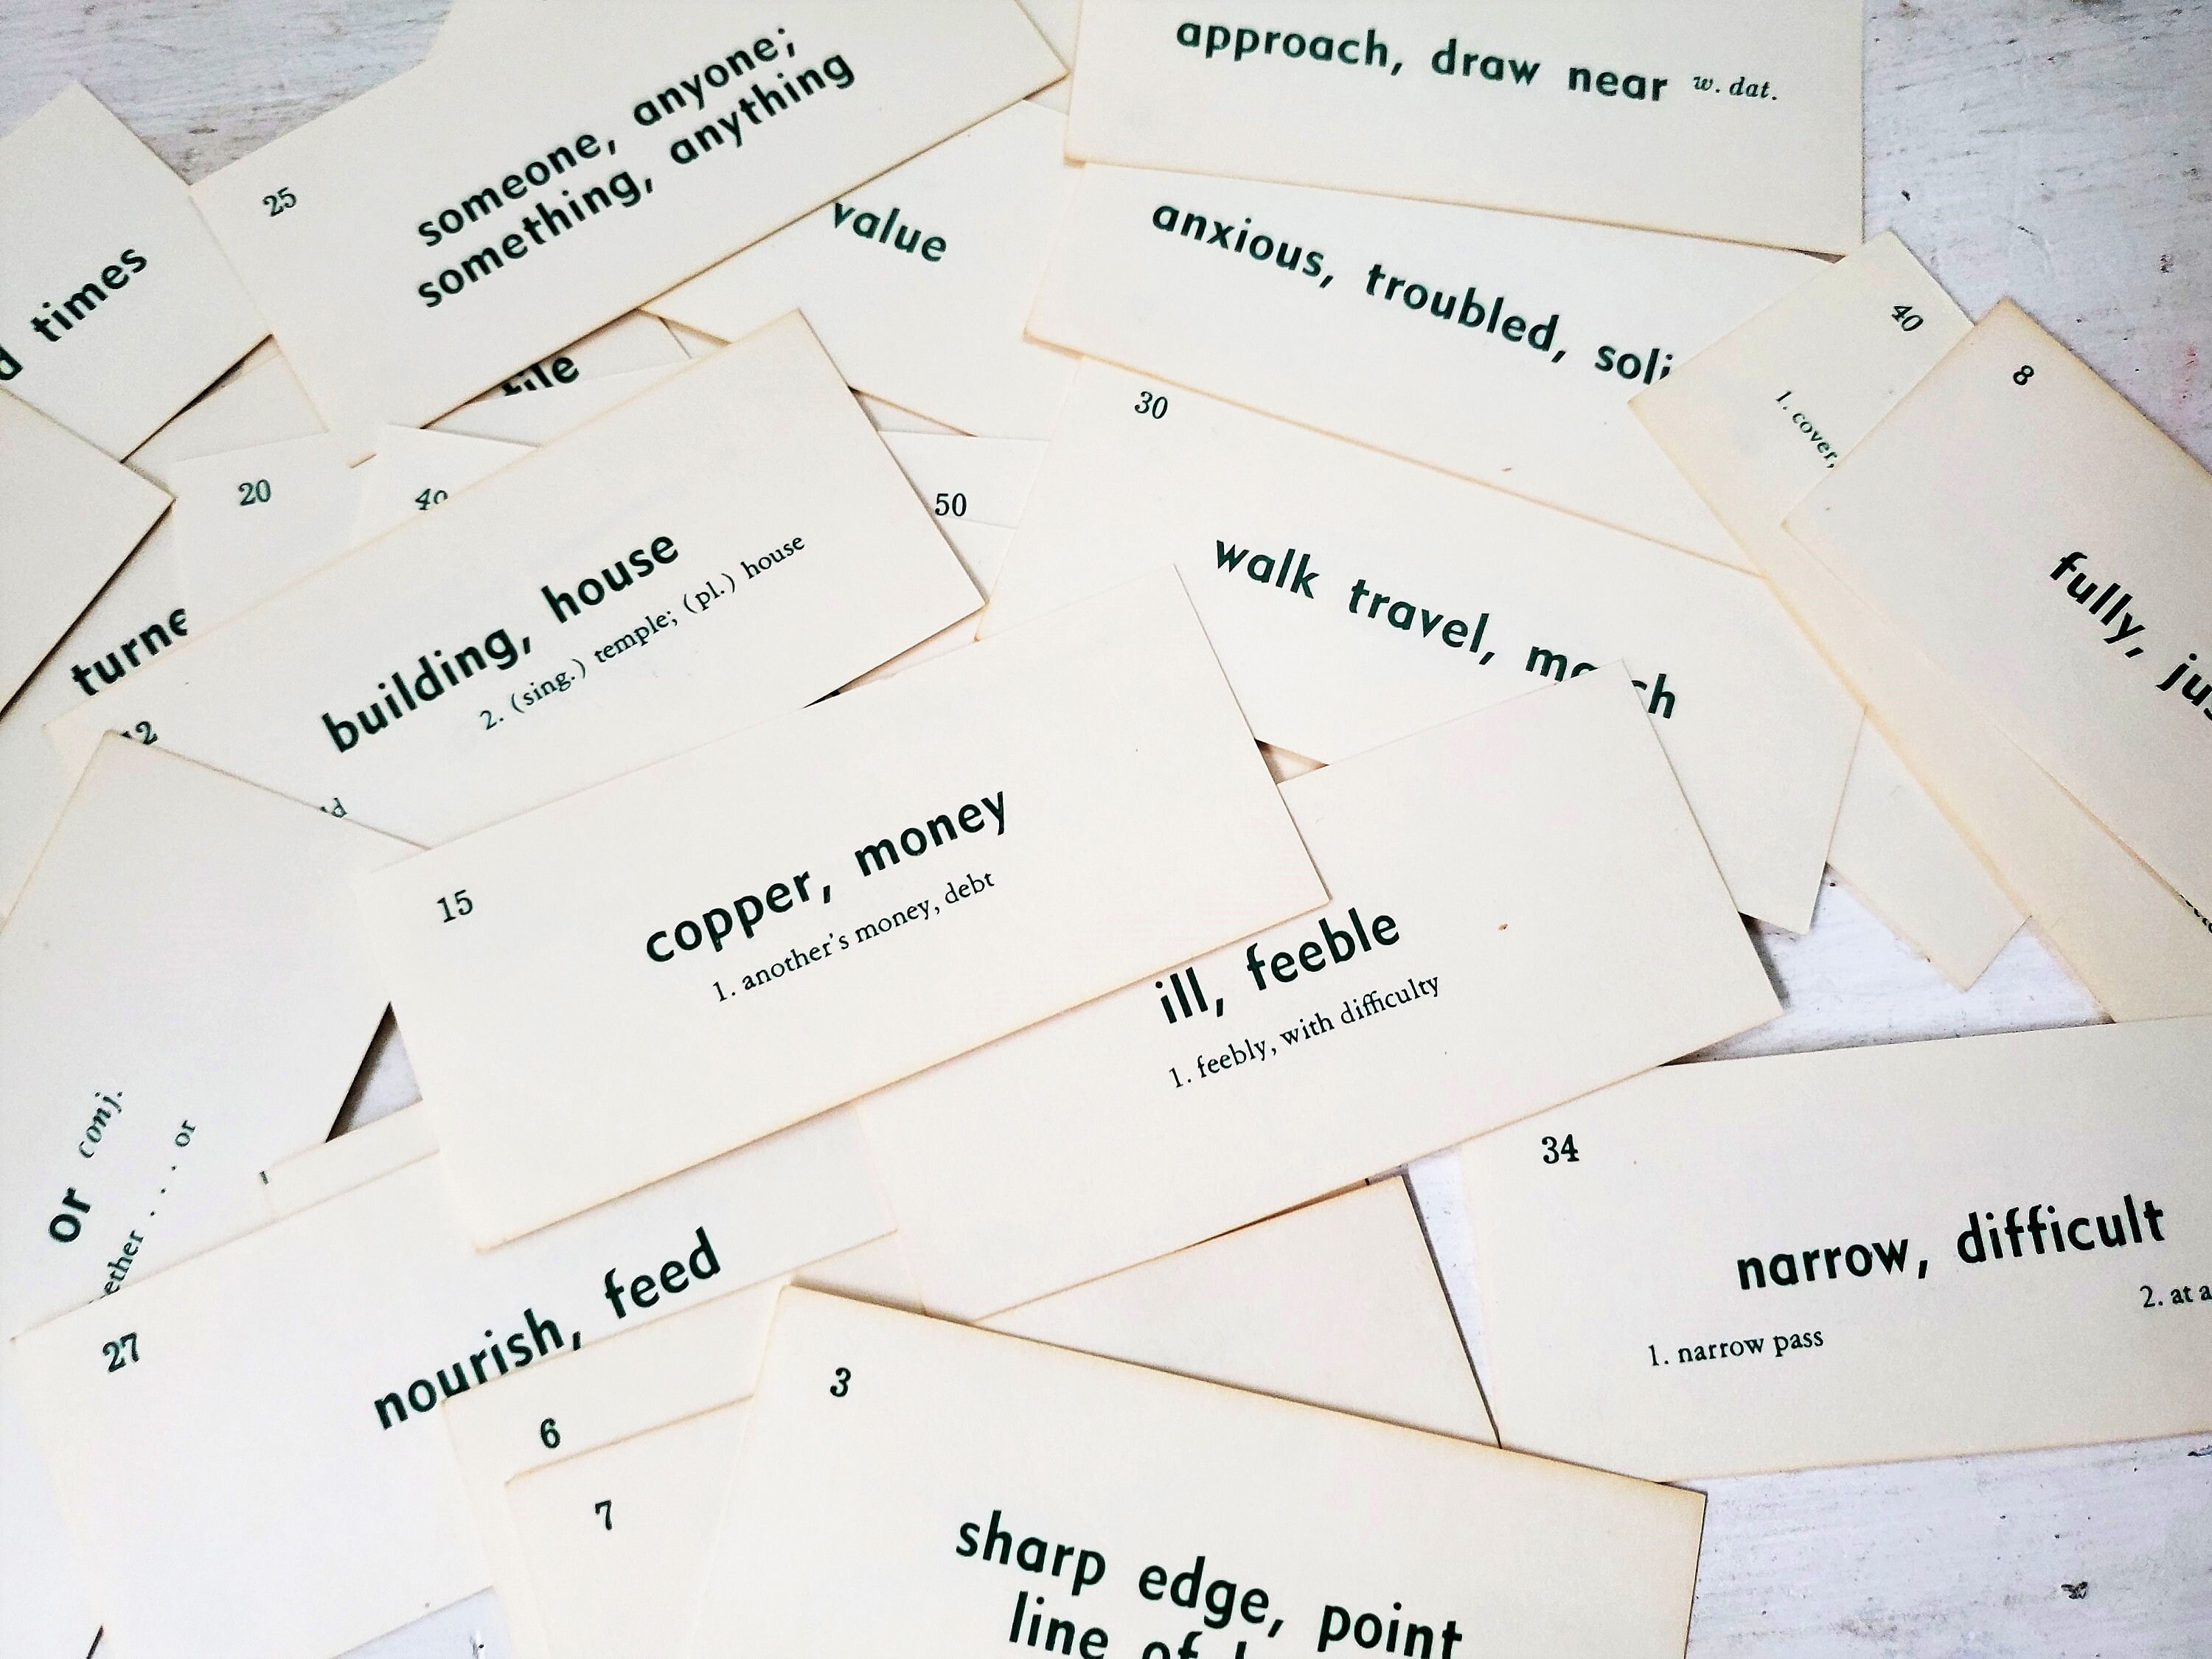 approach, draw near w. dat.
25
someone, anyone;
something, anything
value
anxious, troubled,
times
40
1. cover,
8
fully,
30
walk travel,
20
40
50
building, house
2. (sing.) temple; (pl.) house
12
15
copper, money
1. another's money, debt
ill, feeble
1. feebly, with difficulty
or conj.
. . . or
34
narrow, difficult
1. narrow pass
2. at a
27
nourish, feed
6
7
3
sharp edge, point
line of